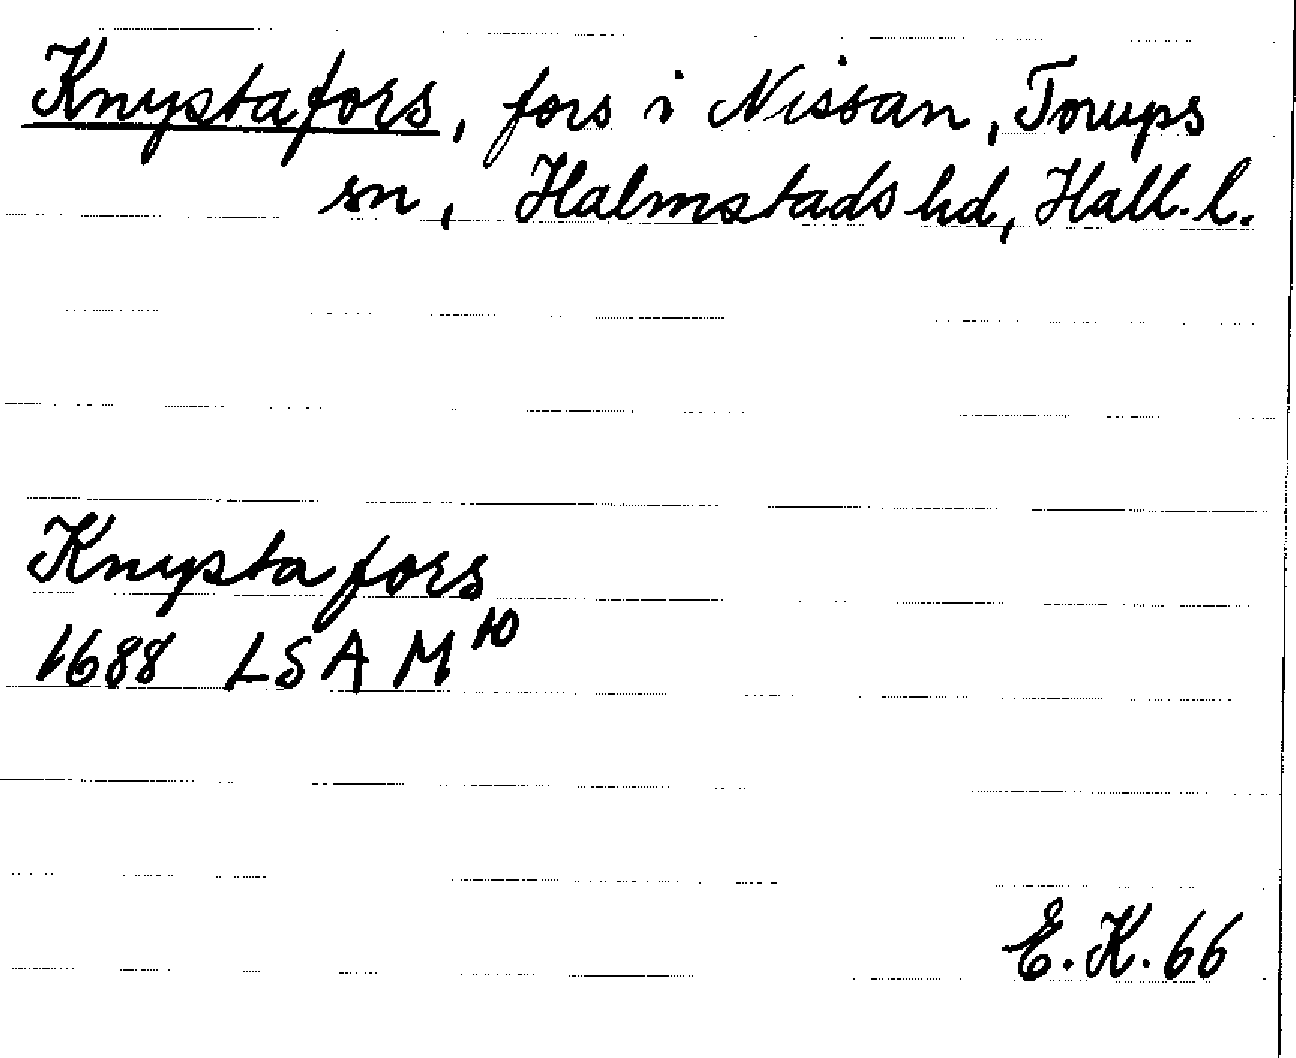 Knystafors, fors i Nissan, Torups
sn, Halmstads hd, Hall. l.
Knystafors
1688 LSA M¹⁰
E.K. 66